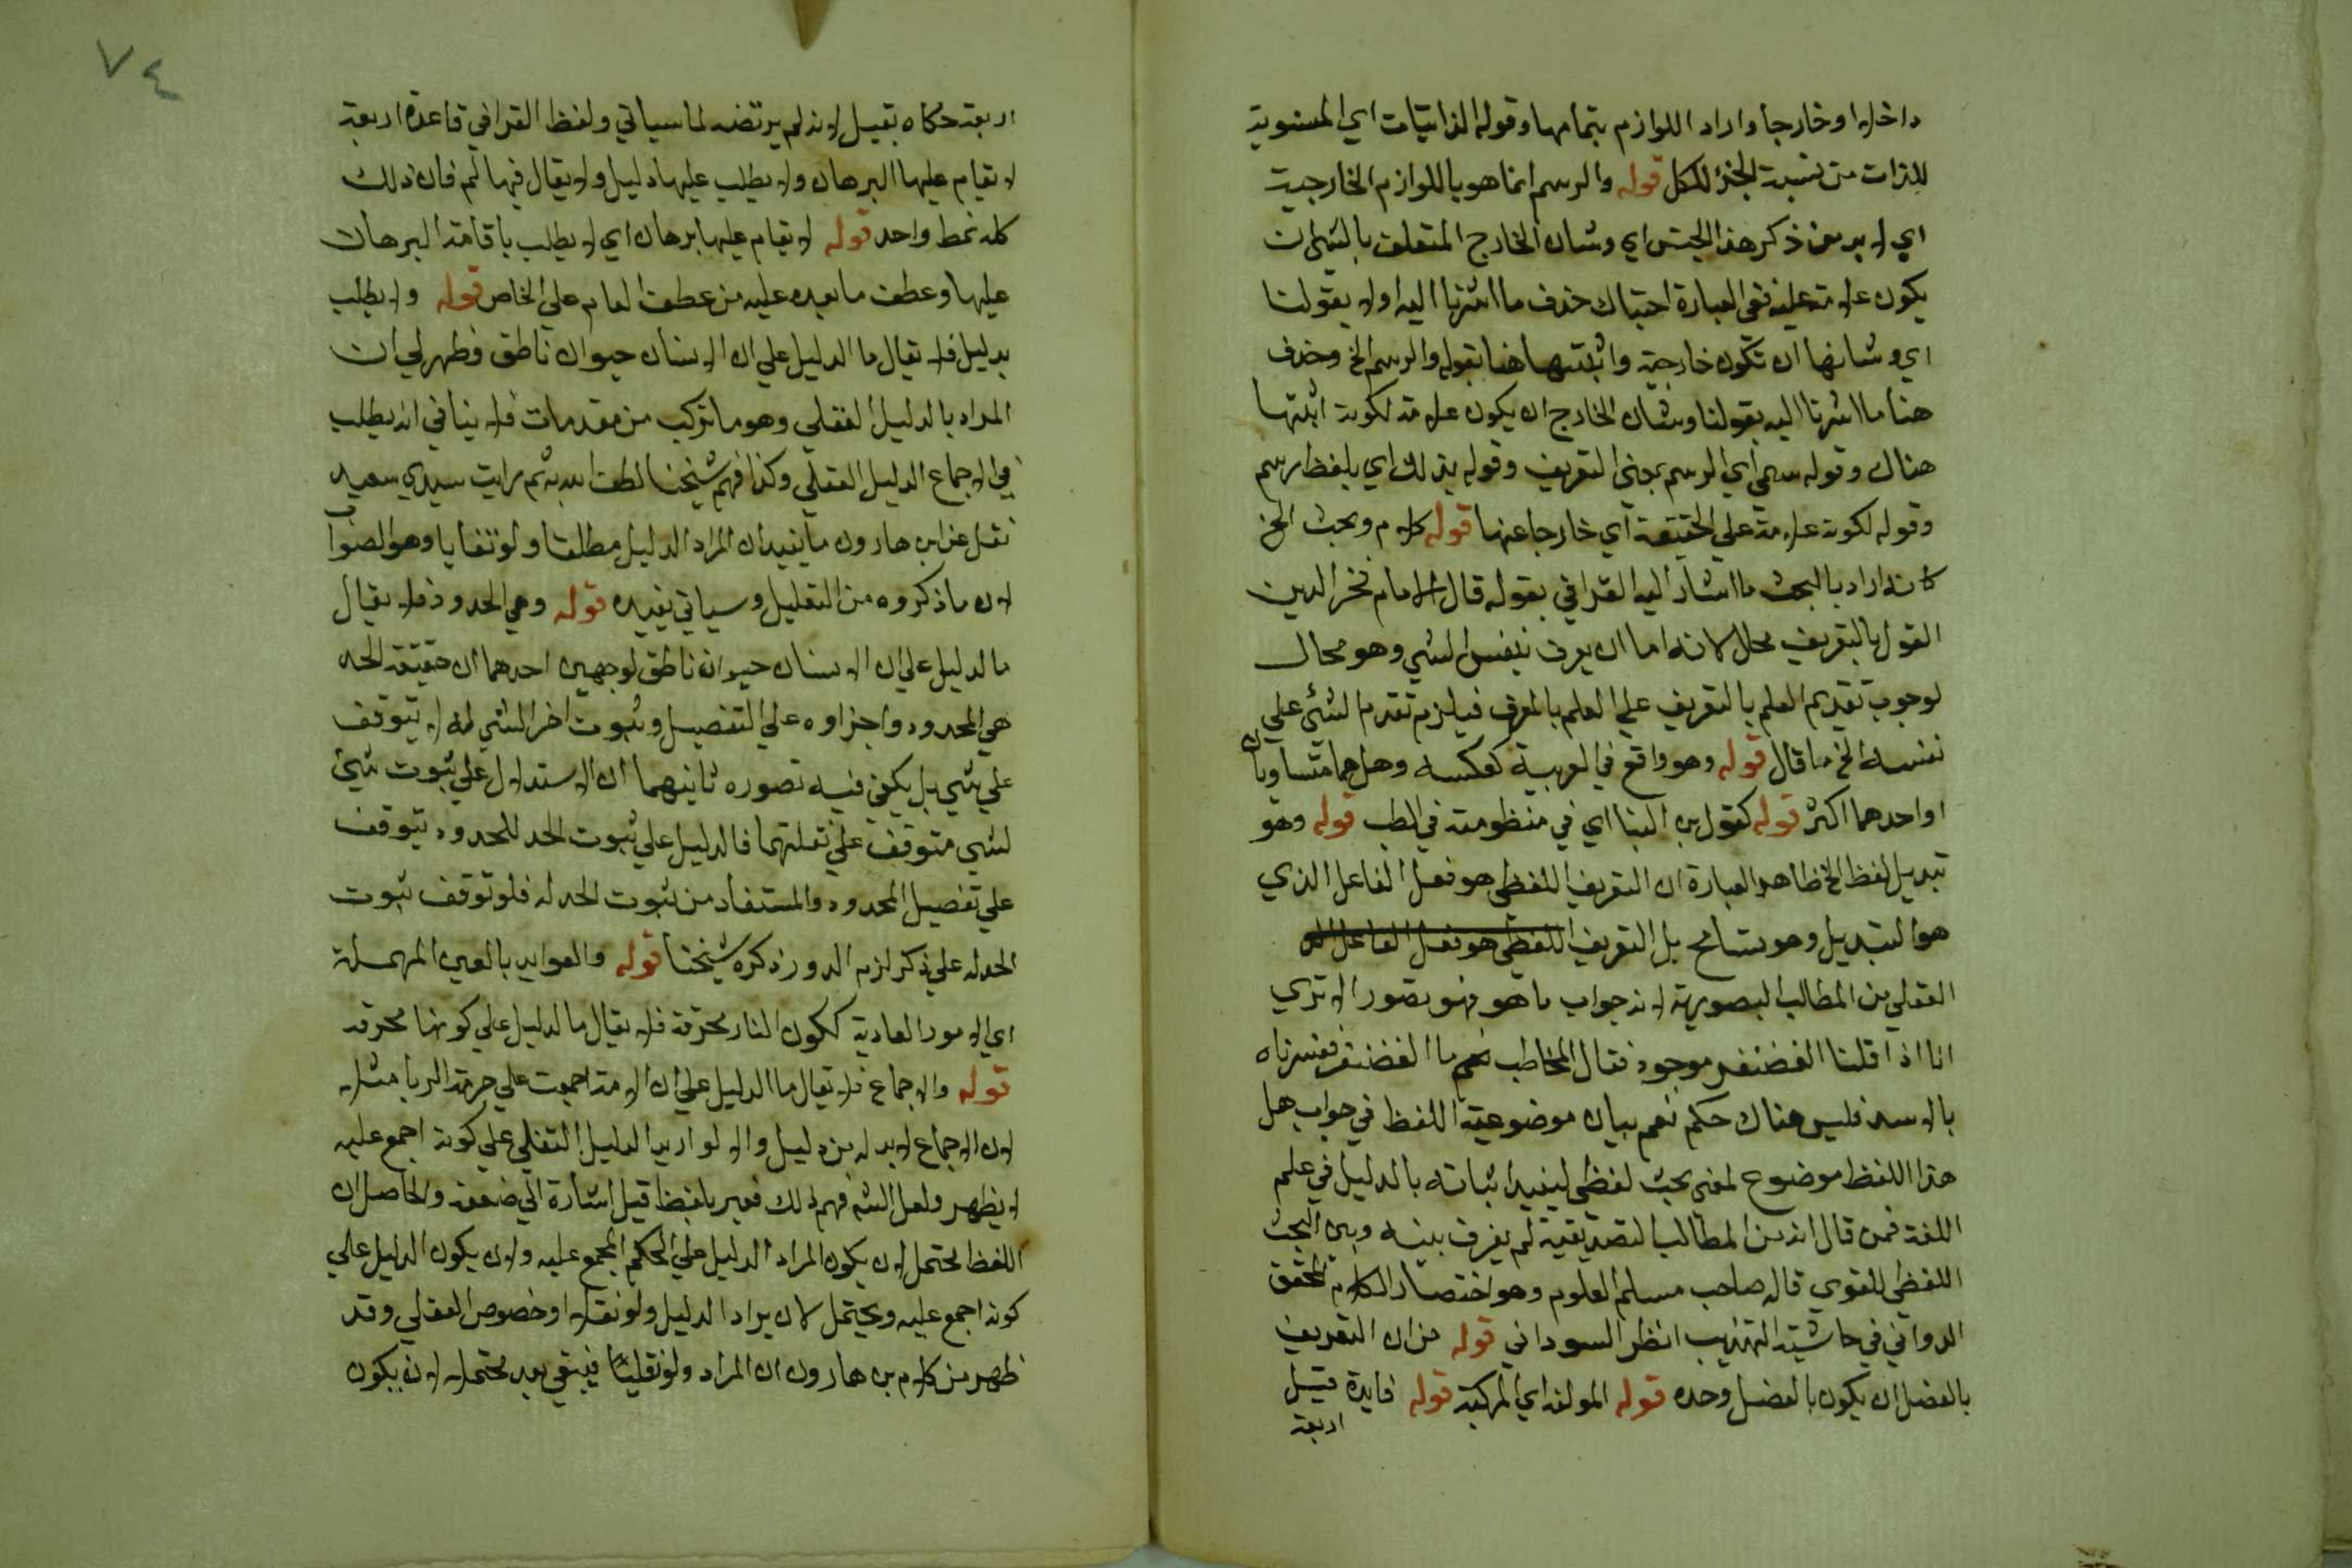 داخلا او خارجا واراد اللوازم بتمامها وقوله الذاتيات اي المنسوبة
للذات من نسبة الجزء للكل قوله والرسم انما هو باللوازم الخارجية
اي لا بد من ذكر هذا الجنس اي وشان الخارج المتعلق بالشي ان
يكون علامة عليه ففي العبارة احتباك حذف ما اشرنا اليه اولا بقولنا
اي وشانها ان تكون خارجية واثبتها هنا بقوله والرسم الخ وحذف
هنا ما اشرنا اليه بقولنا وشان الخارج ان يكون علامة لكونه اثبتها
هناك وقوله سمي اي الرسم بمعنى التعريف وقوله بذلك اي بلفظ رسم
وقوله لكونه علامة علي الحقيقة اي خارجا عنها قوله كلام وبحث الخ
كانه اراد بالبحث ما اشار اليه القرافي بقوله قال الامام فخر الدين
القول بالتعريف محال لانه اما ان يعرف بنفس الشي وهو محال
لوجوب تقديم العلم بالتعريف علي العلم بالمعرف فيلزم تقدم الشئ علي
نفسه الخ ما قال قوله وهو واقع في العربية كعكسه وهل هما متساويان
او احدهما اكثر قوله كقول بن البنا اي في منظومته في الطب قوله وهو
تبديل لفظ الخ ظاهر العبارة ان التعريف اللفظي هو فعل الفاعل الذي
هو التبديل وهو تسامح بل التعريف اللفظي هو فعل الفاعل الذ
اللفظي من المطالب التصورية لانه جواب ما هو فهو تصور الا تري
انا اذا قلنا الغضنفر موجود فقال المخاطب نعم ما الغضنفر ففسرناه
بالاسد فليس هناك حكم نعم بيان موضوعية اللفظ في جواب هل
هذا اللفظ موضوع لمعنى بحث لفظي ليفيد اثباته بالدليل في علم
اللغة فمن قال انه من المطالب التصديقية لم يفرق بينه وبين البحث
اللفظي اللغوي قاله صاحب مسلم العلوم وهو اختصار الكلام المحقق
الدواني في حاشية التهذيب انظر السوداني قوله من ان التعريف
بالفصل ان يكون بالفصل وحده قوله المولفة اي المركبة قوله فايدة قيل
اربعة
٧٤
اربعة حكاه بقيل لانه لم يرتضه لما سياتي ولفظ القرافي قاعدة اربعة
لا يقام عليها البرهان ولا يطلب عليها دليل ولا يقال فيها لم فان ذلك
كله نمط واحد قوله لا يقام عليها برهان اي لا يطلب باقامة البرهان
عليها وعطف ما بعده عليه من عطف العام علي الخاص قوله ولا يطلب
بدليل فلا يقال ما الدليل علي ان الانسان حيوان ناطق وظهر لي ان
المراد بالدليل العقلي وهو ما تركب من مقدمات فلا ينافي انه يطلب
في الاجماع الدليل العقلي وكذا فهم شيخنا لطف الله به ثم رايت سيدي سعيد
نقل عن ابن هارون ما يفيد ان المراد الدليل مطلقا ولو نقليا وهو الصواب
لان ما ذكروه من التعليل وسياتي يفيده قوله وهي الحدود فلا يقال
ما الدليل علي ان الانسان حيوان ناطق لوجهين احدهما ان حقيقة الحد
هي المحدود واجزاوه علي التفصيل وثبوت اجزا الشي له لا يتوقف
علي شي بل يكفي فيه تصوره ثانيهما ان الاستدلال علي ثبوت شئ
لشي متوقف علي تعقلهما فالدليل علي ثبوت الحد للمحدود يتوقف
علي تفصيل المحدود والمستفاد من ثبوت الحد له فلو توقف ثبوت
الحد له علي ذكر لزم الدور ذكره شيخنا قوله والعوايد بالعين المهملة
اي الامور العادية ككون النار محرقة فلا يقال ما الدليل علي كونها محرقة
قوله والاجماع فلا يقال ما الدليل علي ان الامة اجمعت علي حرمة الربا مثلا
لان الاجماع لا بد له من دليل والا لو اريد الدليل النقلي علي كونه اجمع عليه
لا يظهر ولعل الشم فهم ذلك فعبر بلفظ قيل اشارة الي ضعفه والحاصل ان
اللفظ يحتمل لان يكون المراد الدليل علي الحكم المجمع عليه ولان يكون الدليل علي
كونه اجمع عليه ويحتمل لان يراد الدليل ولو نقلا او خصوص العقلي وقد
ظهر من كلام بن هارون ان المراد ولو نقليا فيبقي بعد محتملا لان يكون